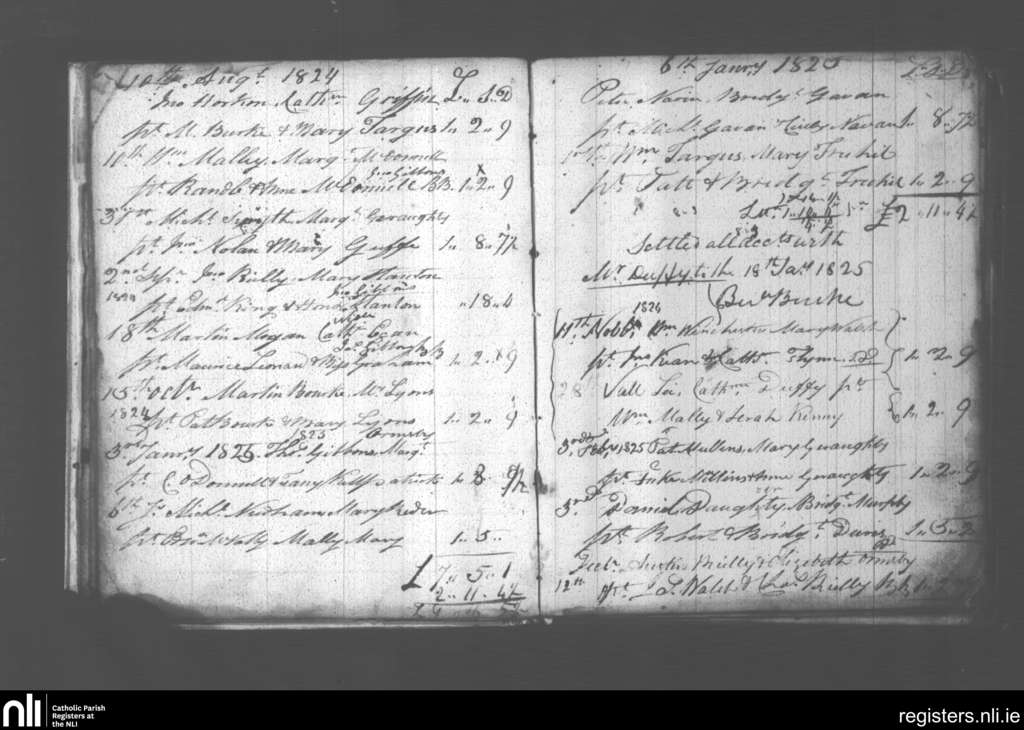 10th Augt. 1824
Jno Horkon Cathn Griffin £ S D
pt. M. Burke & Mary Fargus 1 .. 2 .. 9
11th Wm Malley Margt McDonnell
Jno Gibbons
pt. Randl & Anne McDonnell BB. 1 .. 2 .. 9
31st Michl Smyth Margt Geraughty
pt. Jno Nolan & Mary Guffe 1 .. 8 .. 7½
2nd Sepr Jno Reilly Mary Stanton
Jno Gibbons
1824 pt Edmd King & Honor Stanton .. 18 .. 4
18th Martin Mogan Cathn Egan
Jno Gibbons BB
pt. Maurice Lienard & Biss Graham 1 .. 2 .. 9
15th Octr Martin Bourke My Lyons
1824 pt Pat Bourke & Mary Lyons 1 .. 2 .. 9
1825 Ormsby
3rd Janry 1825 Thos Gibbons Margt
pt. C O'Donnell & Fanny Kilpatrick 1 .. 8 .. 9½
6th Jy Michl Needham Mary Reder
pt Mally Mary 1 .. 5 ..
£ 7 .. 5 .. 1
2 .. 11 .. 4½
6th Janry 1825 £ S D
Peter Navin Bridgt Gavan
pt. Michl Gavan & Cicily Navan 1 .. 8 .. 7½
Wm Fargus Mary Frehil
pt. Patt & Bridgt Frehil 1 .. 2 .. 9
£2 .. 11 .. 4½
Settled all accts with
Mr Duffy till 18th Jany 1825
Burke
1824
11th Wm Winchester Mary Walsh
pt. Jno Kean & Cathn Flynn 1 .. 2 .. 9
28th Vall Cathn Duffy pt
Wm Mally & Serah Kenny 1 .. 2 .. 9
3rd Feby 1825 Pat Mullens Mary Geraughty
pt. Luke Mullins & Anne Geraughty 1 .. 2 .. 9
3rd Daniel Daughty Bridgt Murphy
pt. Robert & Bridgt Davis 1 .. 5 .. 2
Feby Austin Reilly & Elizabeth Ormsby
12th pt. Walsh & Reilly
nli
Catholic Parish
Registers at
the NLI
registers.nli.ie